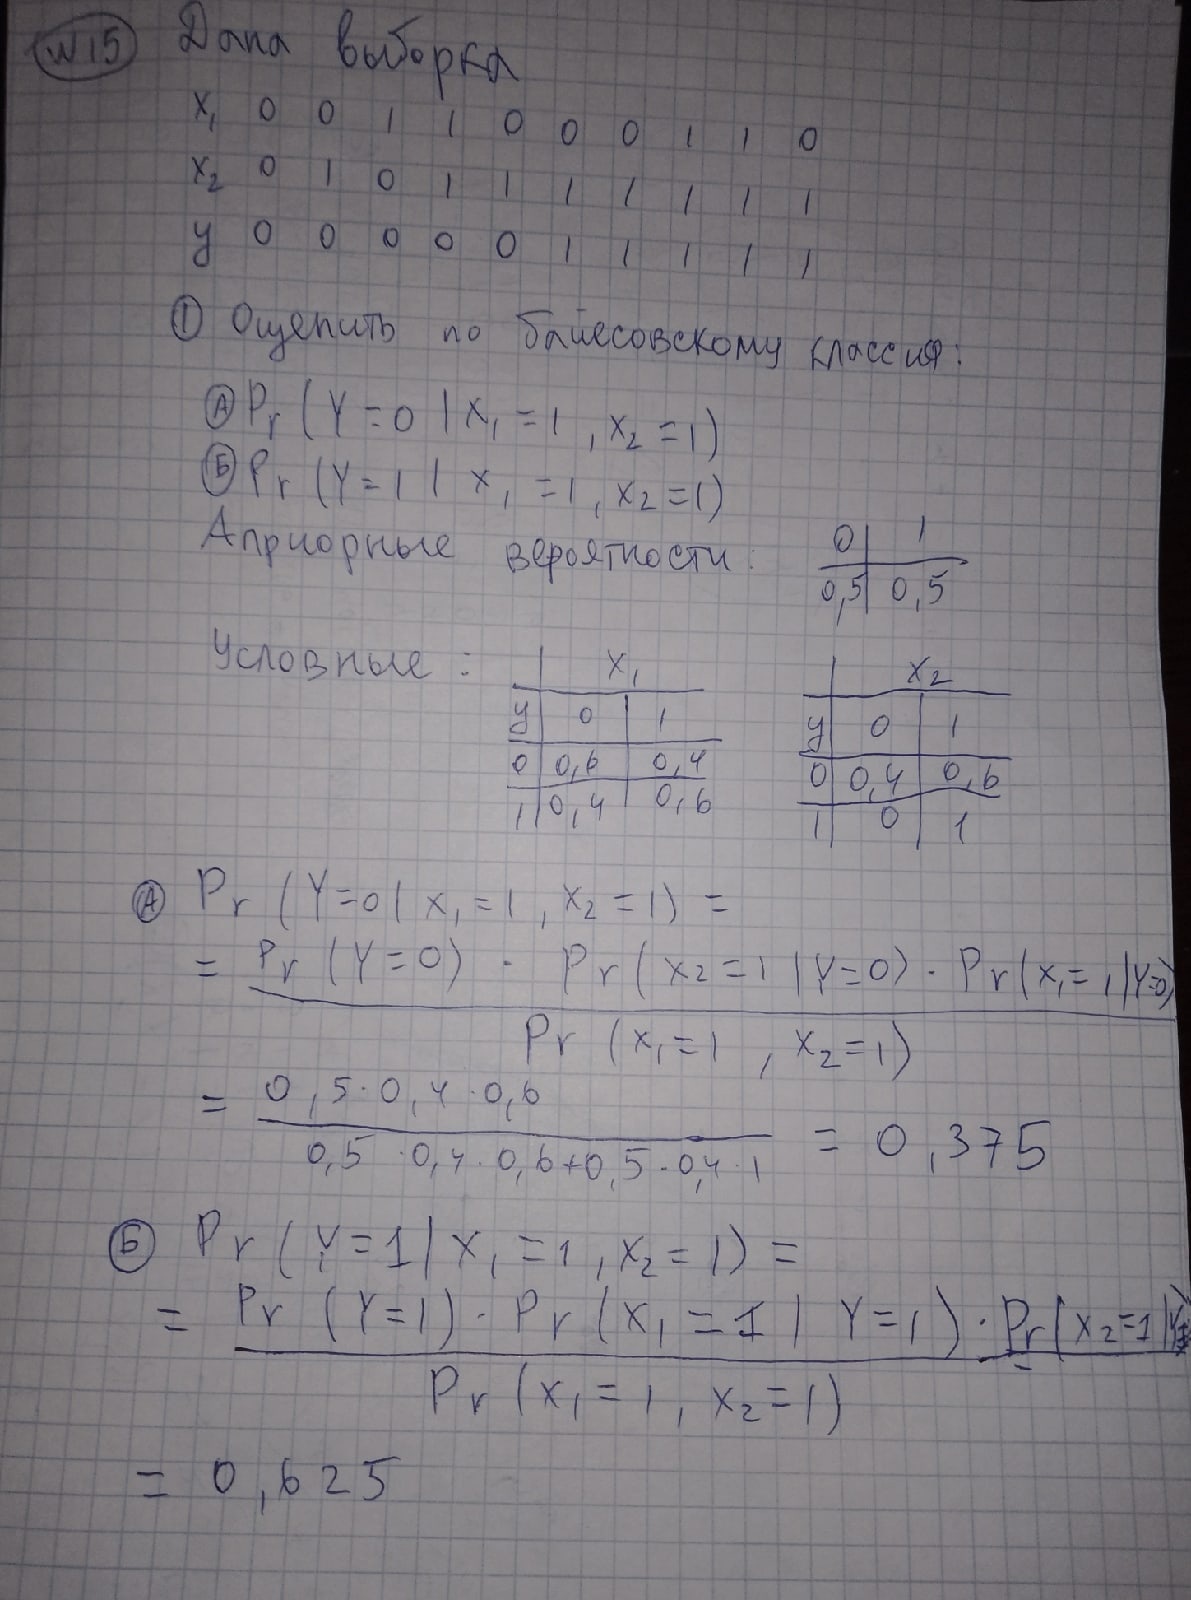 N15 Дана выборка
x₁ 0 0 1 1 0 0 0 1 1 0
x₂ 0 1 0 1 1 1 1 1 1 1
y 0 0 0 0 0 1 1 1 1 1
① Оценить по байесовскому классиф:
Ⓐ Pr (Y=0 | x₁=1, x₂=1)
Ⓑ Pr (Y=1 | x₁=1, x₂=1)
Априорные вероятности: 0 1
0,5 0,5
Условные: x₁ x₂
y 0 1 y 0 1
0 0,6 0,4 0 0,4 0,6
1 0,4 0,6 1 0 1
Ⓐ Pr (Y=0 | x₁=1, x₂=1) =
= Pr (Y=0) · Pr (x₂=1 | Y=0) · Pr (x₁=1 | Y=0)
Pr (x₁=1, x₂=1)
= 0,5·0,4·0,6
0,5·0,4·0,6+0,5·0,4·1 = 0,375
Б Pr (Y=1 | x₁=1, x₂=1) =
= Pr (Y=1) · Pr (x₁=1 | Y=1) · Pr (x₂=1 | Y=
Pr (x₁=1, x₂=1)
= 0,625